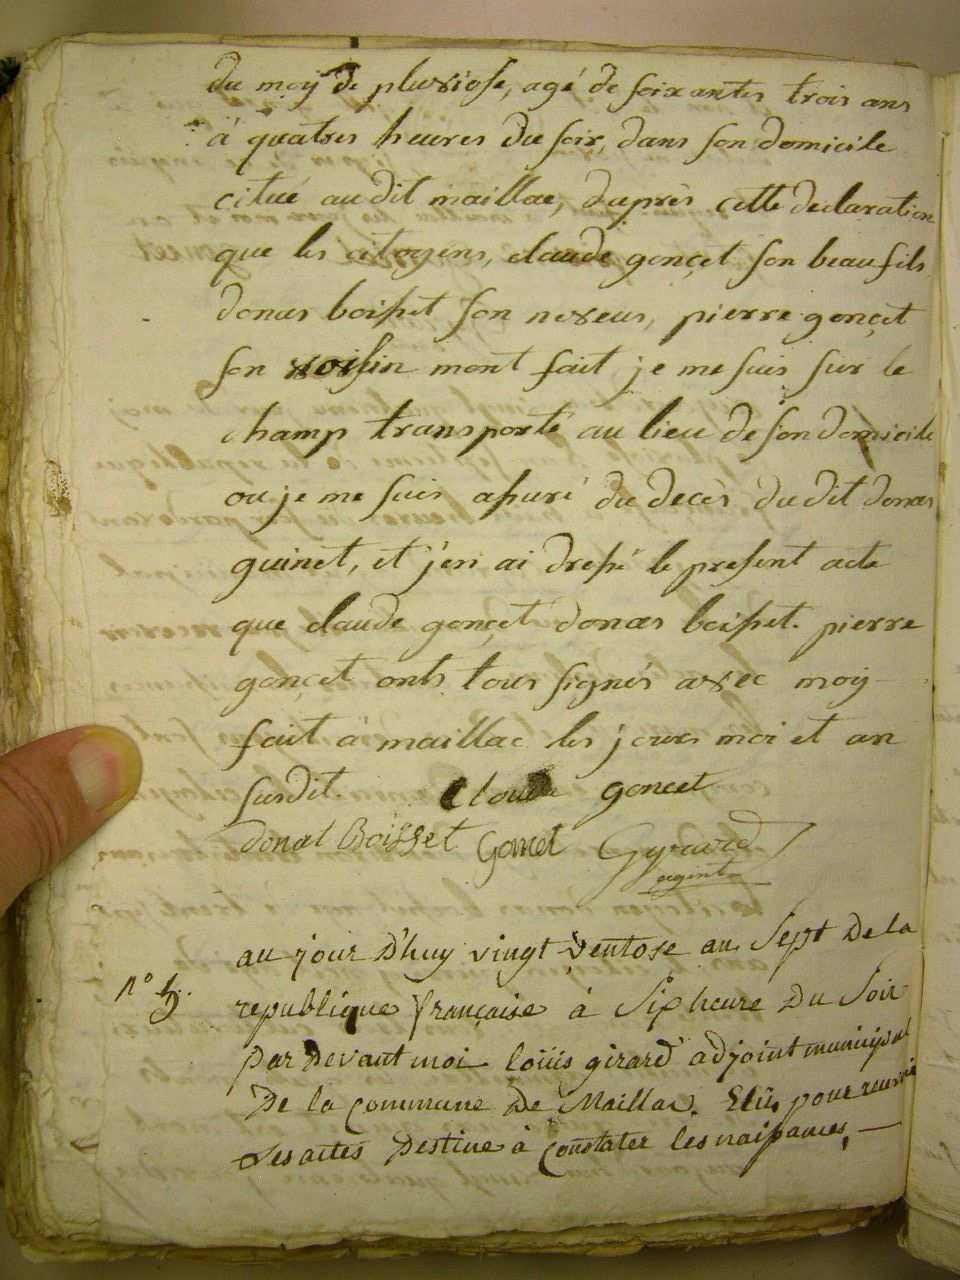 du moy de pluviose, agé de soixantes trois ans
à quatres heures du soir, dans son domicile
citué au dit maillac, daprès cette declaration
que les citoyens, claude gonçet son beau fils
donas boisset son neveus, pierre gonçet
son voisin mont fait, je me suis sur le
champ transporté au lieu de son domicile
ou je me suis asuré du decès du dit donas
guinet, et j'en ai dressé le present acte
que claude gonçet donas boisset. pierre
gonçet onts tous signés avec moy
fait à maillac les jours moi et an
susdit Cloude goncet
donat Boisset Goncet Gyrard
agent
au jour D'huy vingt ventose an Sept De la
n° 5.
republique française à Six heure Du Soir
par Devant moi loüis girard adjoint municipal
De la Commune De Maillac. Elüs pour recevoir
Les actes Destine à Constater les naissances,